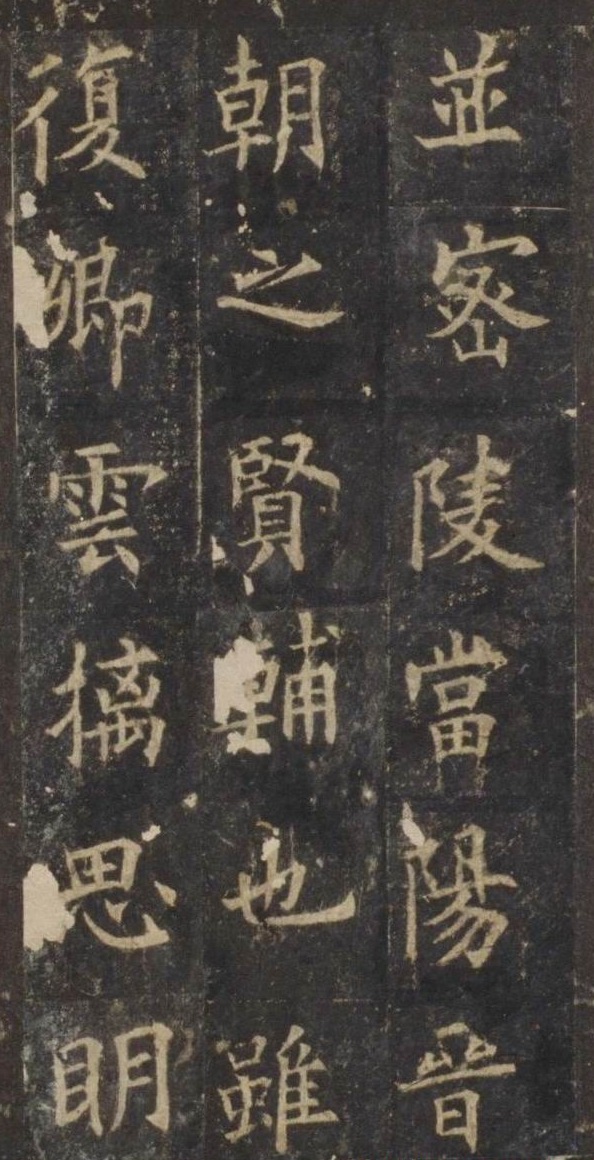 並密陵當陽晉
朝之賢輔也雖
復卿雲摛思朙